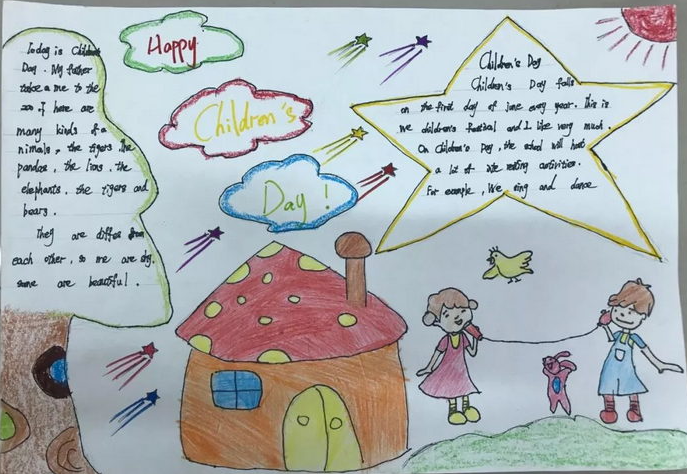 Happy
Children's
Day!
Today is Children
Day. My father
take a me to the
zoo. I here are
many kinds of a
nimals, the tigers, the
pandas, the lions, the
elephants, the tigers and
bears.
They are differ from
each other, so me are shy,
some are beautiful.
Children's Day
Children's Day falls
on the first day of june every year. This is
we children's festival and I like very much.
On Children's Day, the school will host
a lot of inte resting activities.
For example, We sing and dance